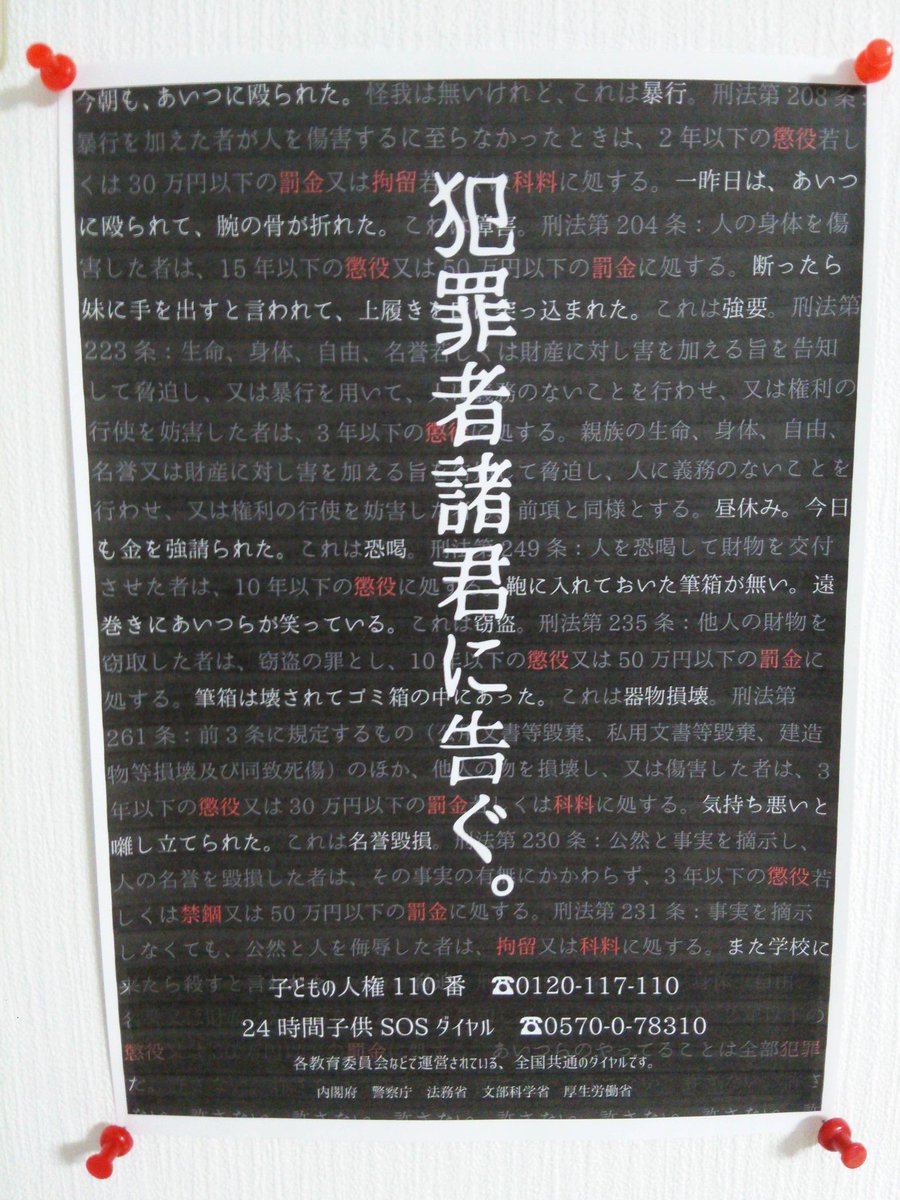 犯罪者諸君に告ぐ。
今朝も、あいつに殴られた。怪我は無いけれど、これは暴行。刑法第208条：
暴行を加えた者が人を傷害するに至らなかったときは、2年以下の懲役若し
くは30万円以下の罰金又は拘留若しくは科料に処する。一昨日は、あいつ
に殴られて、腕の骨が折れた。これは障害。刑法第204条：人の身体を傷
害した者は、15年以下の懲役又は50万円以下の罰金に処する。断ったら
妹に手を出すと言われて、上履きを突っ込まれた。これは強要。刑法第
223条：生命、身体、自由、名誉若しくは財産に対し害を加える旨を告知
して脅迫し、又は暴行を用いて、人に義務のないことを行わせ、又は権利の
行使を妨害した者は、3年以下の懲役に処する。親族の生命、身体、自由、
名誉又は財産に対し害を加える旨を告知して脅迫し、人に義務のないことを
行わせ、又は権利の行使を妨害した者も、前項と同様とする。昼休み。今日
も金を強請られた。これは恐喝。刑法第249条：人を恐喝して財物を交付
させた者は、10年以下の懲役に処する。鞄に入れておいた筆箱が無い。遠
巻きにあいつらが笑っている。これは窃盗。刑法第235条：他人の財物を
窃取した者は、窃盗の罪とし、10年以下の懲役又は50万円以下の罰金に
処する。筆箱は壊されてゴミ箱の中にあった。これは器物損壊。刑法第
261条：前3条に規定するもの（公用文書等毀棄、私用文書等毀棄、建造
物等損壊及び同致死傷）のほか、他人の物を損壊し、又は傷害した者は、3
年以下の懲役又は30万円以下の罰金若しくは科料に処する。気持ち悪いと
囃し立てられた。これは名誉毀損。刑法第230条：公然と事実を摘示し、
人の名誉を毀損した者は、その事実の有無にかかわらず、3年以下の懲役若
しくは禁錮又は50万円以下の罰金に処する。刑法第231条：事実を摘示
しなくても、公然と人を侮辱した者は、拘留又は科料に処する。また学校に
来たら殺すと言われた。
子どもの人権110番　☎0120-117-110
24時間子供SOSダイヤル　☎0570-0-78310
懲役又は 罰金 あいつらのやってることは全部犯罪
各教育委員会などで運営されている、全国共通のダイヤルです。
だ。
内閣府　警察庁　法務省　文部科学省　厚生労働省
許さない。許さない。許さない。許さない。